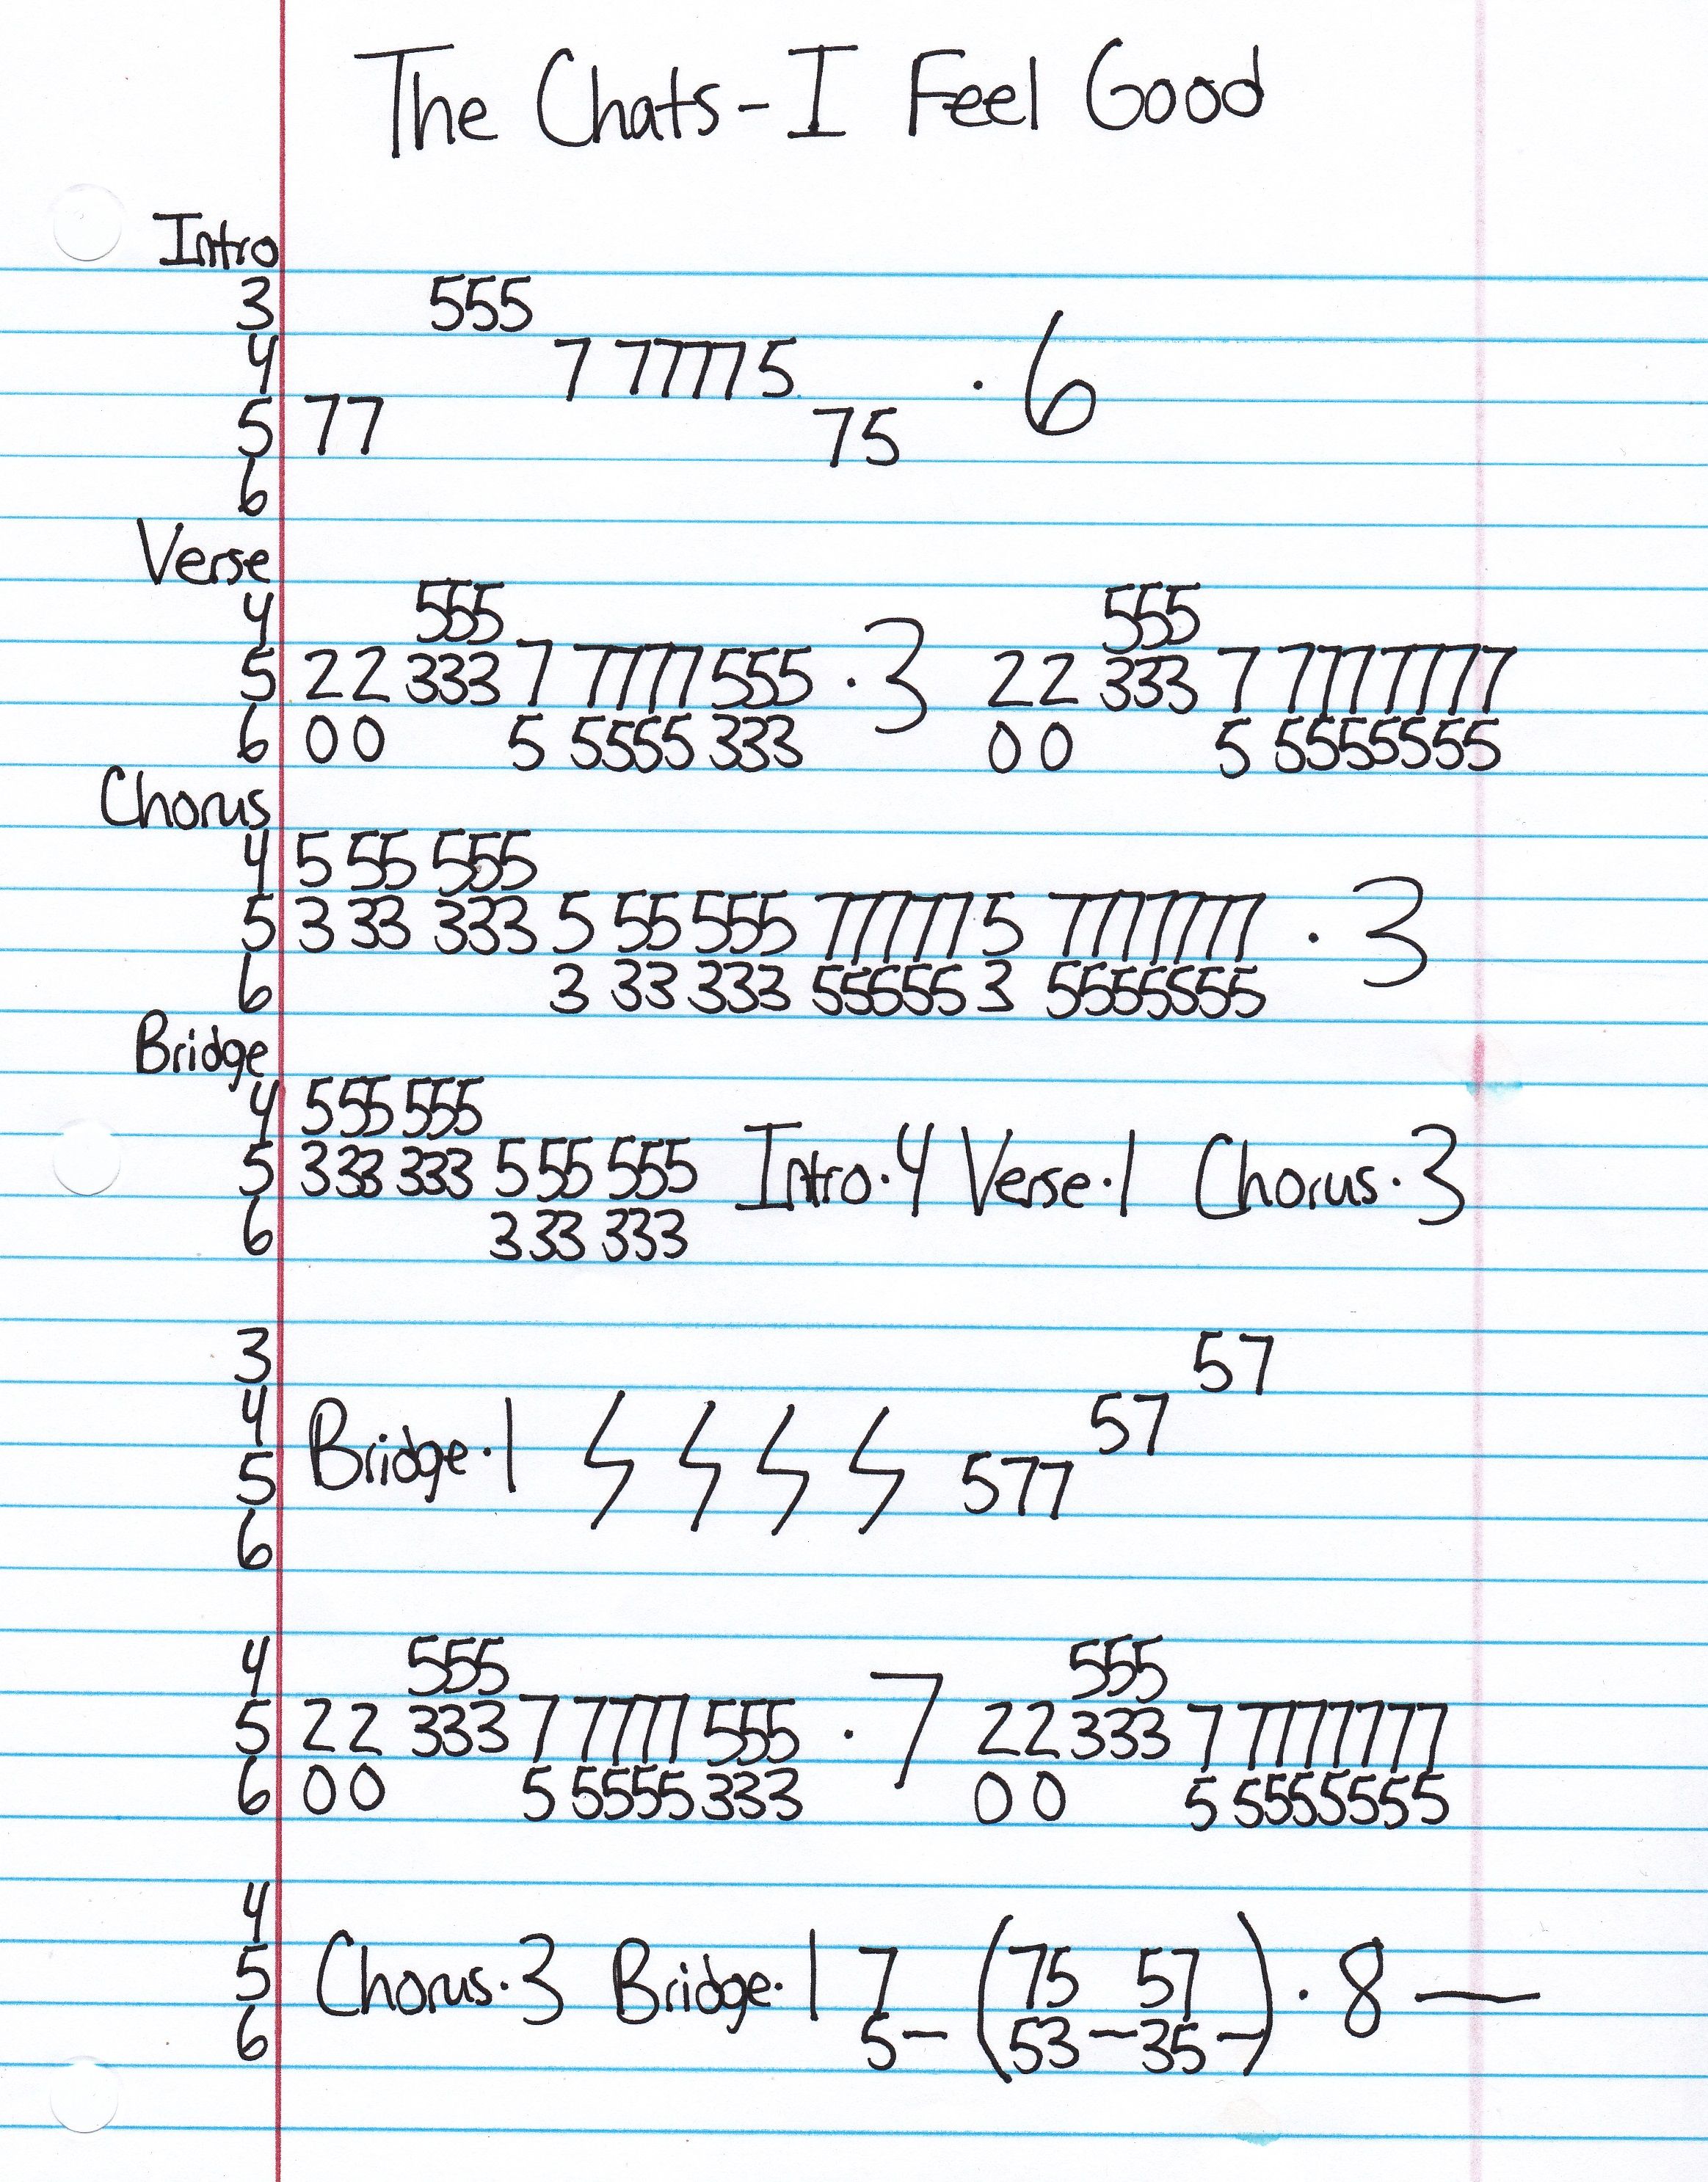 The Chats - I Feel Good
Intro
3 555
4 7 77777 5 · 6
5 77 75
6
Verse
4 555 555
5 22 333 7 7777 555 · 3 22 333 7 7777777
6 00 5 5555 333 00 5 5555555
Chorus
4 5 55 555
5 3 33 333 5 55 555 77777 5 7777777 · 3
6 3 33 333 55555 3 5555555
Bridge
4 555 555
5 333 333 5 55 555 Intro · 4 Verse · 1 Chorus · 3
6 3 33 333
3 57
4 57
5 Bridge · 1 577
6
4 555 555
5 22 333 7 7777 555 · 7 22 333 7 7777777
6 00 5 5555 333 00 5 5555555
4
5 Chorus · 3 Bridge · 1 7 (75 57) · 8 —
6 5 — (53 — 35 —)